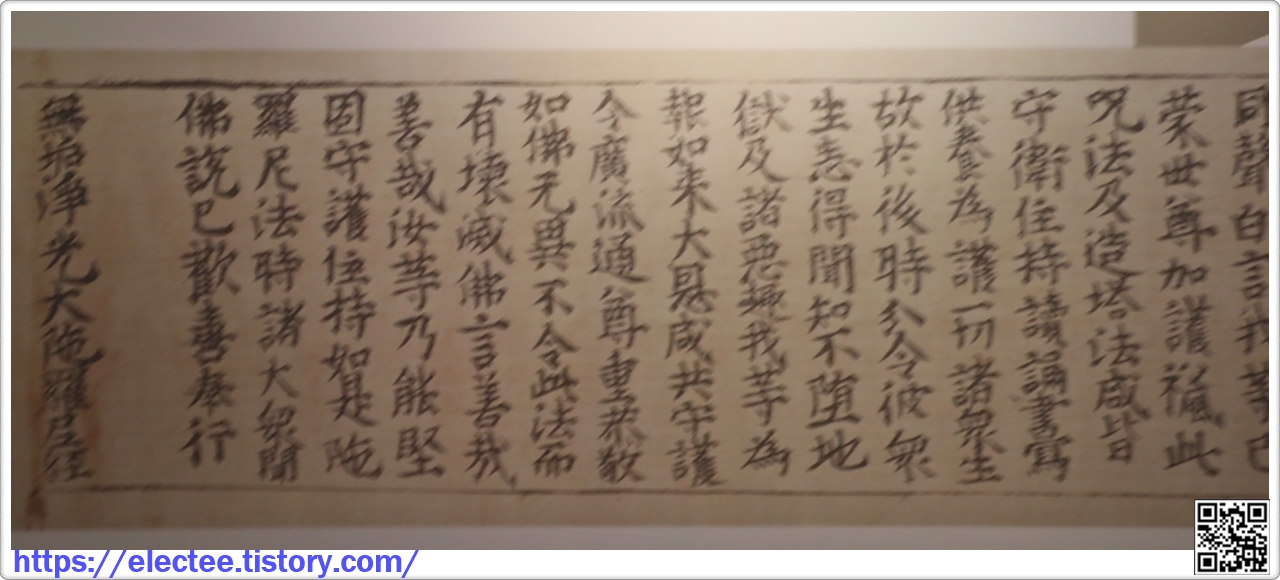 同聲白言我等已
荣世尊加護福此
呪法及造塔法咸皆
守衛住持讀誦書寫
供養為護一切諸衆生
故於後時分令彼衆
生悉得聞知不墮地
獄及諸惡趣我等為
報如来大恩咸共守護
令廣流通尊重恭敬
如佛无異不令此法而
有壞滅佛言善哉
善哉汝等乃能堅
固守護住持如是陁
羅尼法時諸大衆聞
佛說已歡喜奉行
無垢淨光大陁羅尼経
https://electee.tistory.com/